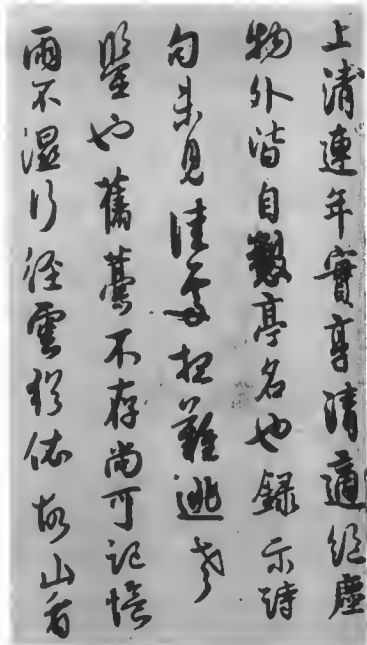 上清連年實享清適絕塵
物外皆自製亭名也錄示詩
句未見佳處拙難逃
鑒也舊藁不存尚可記憶
雨不濕行徑雲歸依故山有